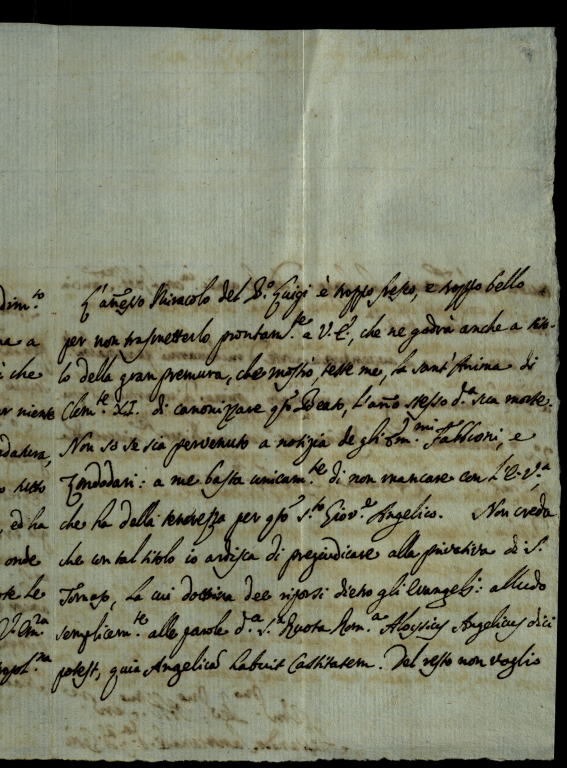 dim.to L'an.sso Miracolo del B.o Luigi è troppo fresco, e troppo bello
na a per non trasmetterlo prontam.te a V. E., che ne godrà anche a tito-
i che lo della gran premura, che mostrò, teste me, la sant'Anima di
er niente Clem.te XI. di canonizzare qto Beato, l'anno stesso d.a sua morte.
ndatura, Non so se sia pervenuto a notizia de gli Em.mi Fabbroni, e
o tutto Zondodari: a me basta unicam.te di non mancare con l'E. V.a
, ed ha che ha della tenerezza per qto s.to Giov.e Angelico. Non creda
onde che con tal titolo io ardisca di pregiudicare alla privativa di S.
ote le Tomaso, la cui dottrina dee riporsi dietro gli Evangelj: alludo
V. Em.za semplicem.te alle parole d.a S.a Ruota Rom.a Aloysius Angelicus dici
potest, quia Angelicã habuit Castitatem. Del resto non voglio